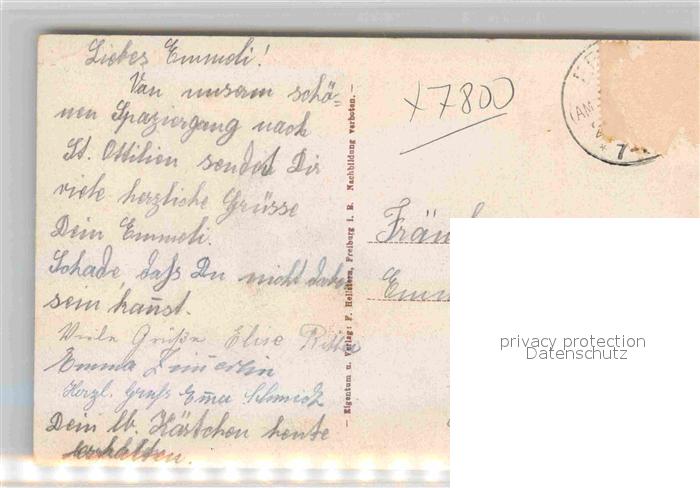 Liebes Emmeli!
Von unserm schö-
nen Spaziergang nach
St. Ottilien sendet Dir
viele herzliche Grüsse
Dein Emmeli.
Schade, daß Du nicht dabei
sein kannst.
Viele Grüße Elise Ritter
Emma Zimmerlin
Herzl. Gruß Em̄a Schmidt
Dein lb. Kärtchen heute
erhalten.
— Eigentum u. Verlag: F. Hellstern, Freiburg i. B. Nachbildung verboten. —
x7800
(AM
* 7
Fräul
Emm
privacy protection
Datenschutz